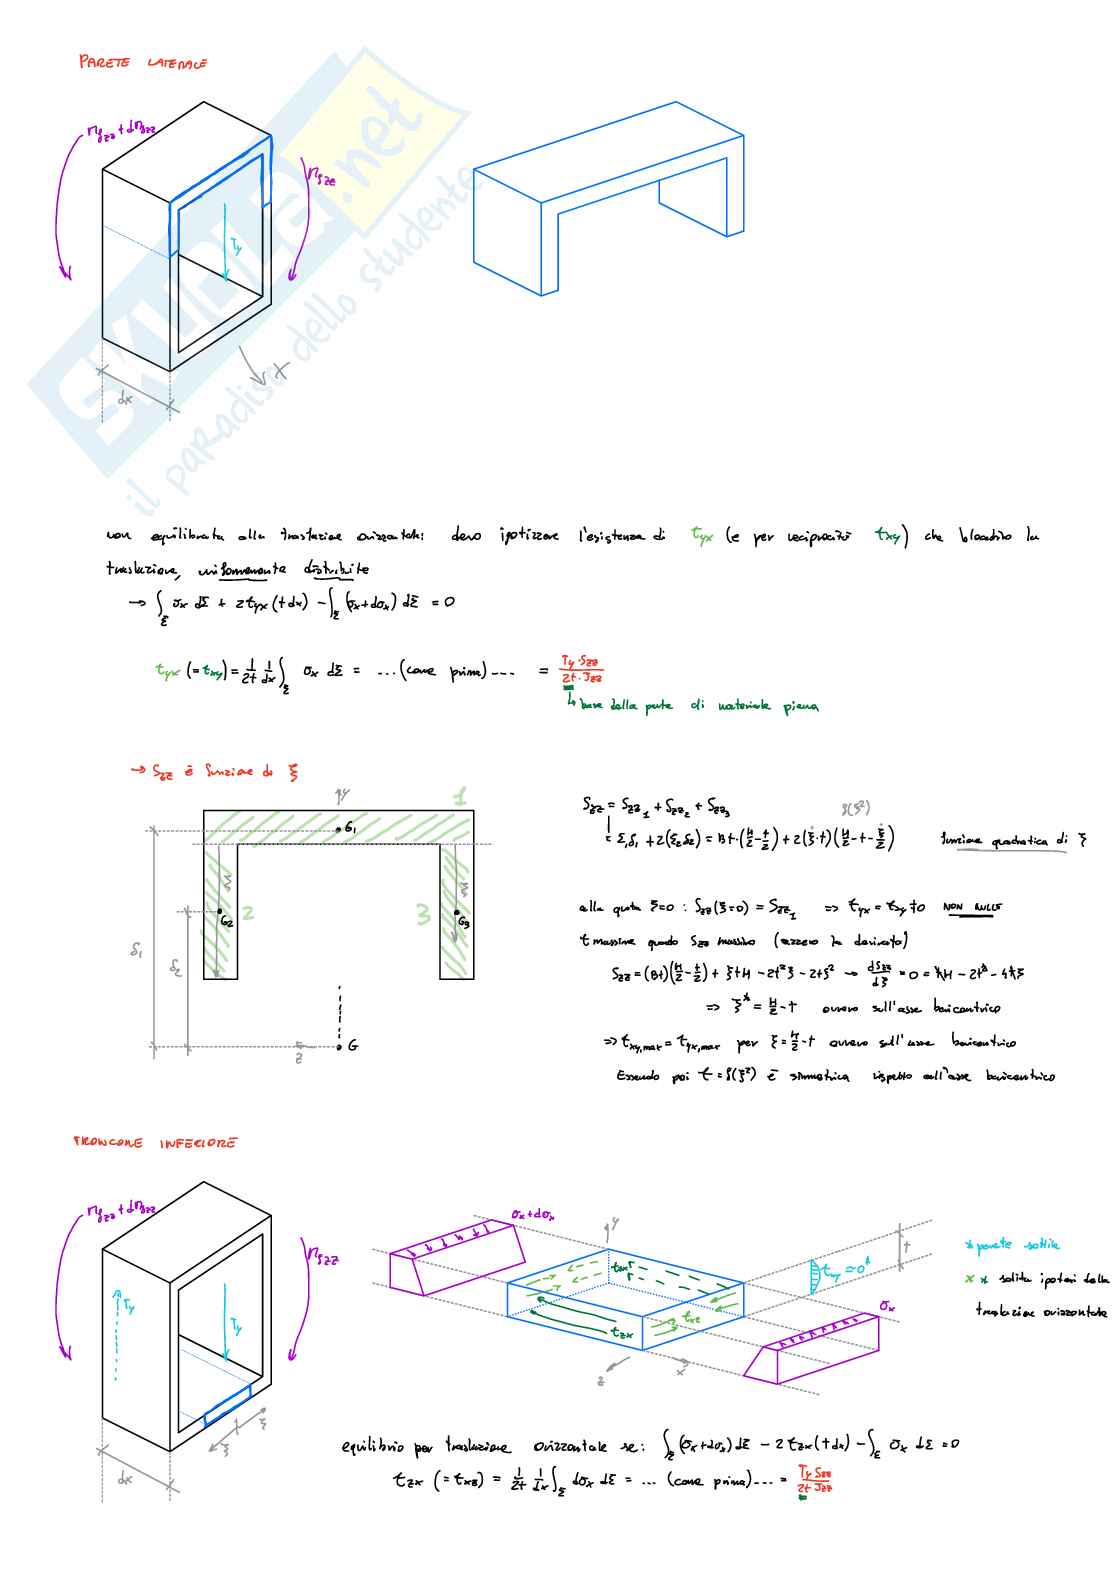 PARETE LATERALE
Mgzz + dMgzz
Mgzz
Ty
x
dx
SKUOLA.net
il paradiso dello studente
non equilibrata alla traslazione orizzontale: devo ipotizzare l'esistenza di tyx (e per reciprocità txy) che blocchino la
traslazione, uniformemente distribuite
→ ∫Σ σx dΣ + 2tyx (t dx) - ∫Σ (σx + dσx) dΣ = 0
tyx (= txy) = 1/2t 1/dx ∫Σ σx dΣ = ... (come prima) ... = Ty · Szz / 2t · Jzz
↳ base della parte di materiale piena
→ Szz è funzione di ξ
y
1
G1
ξ
ξ
G2
2
3
G3
δ1
δ2
z
G
Szz = Szz1 + Szz2 + Szz3
f(ξ²)
= Σ1δ1 + 2(Σ2δ2) = Bt · (H/2 - t/2) + 2(ξ · t)(H/2 - t - ξ/2)
funzione quadratica di ξ
alla quota ξ=0 : Szz(ξ=0) = Szz1 => tyx = txy ≠ 0 NON NULLE
t massime quando Szz massimo (azzero la derivata)
Szz = (Bt)(H/2 - t/2) + ξtH - 2t²ξ - 2tξ² → dSzz/dξ = 0 = tH - 2t² - 4tξ
=> ξ* = H/2 - t ovvero sull'asse baricentrico
=> txy,max = tyx,max per ξ = H/2 - t ovvero sull'asse baricentrico
Essendo poi t = f(ξ²) è simmetrica rispetto all'asse baricentrico
TRONCONE INFERIORE
Mgzz + dMgzz
Mgzz
Ty
Ty
ξ
ξ
dx
σx + dσx
y
tzx
txz
tzx
z
x
txy ≃ 0*
t
σx
* parete sottile
* * solite ipotesi della
traslazione orizzontale
equilibrio per traslazione orizzontale se: ∫Σ (σx + dσx) dΣ - 2 tzx (t dx) - ∫Σ σx dΣ = 0
tzx (= txz) = 1/2t 1/dx ∫Σ dσx dΣ = ... (come prima) ... = Ty Szz / 2t Jzz